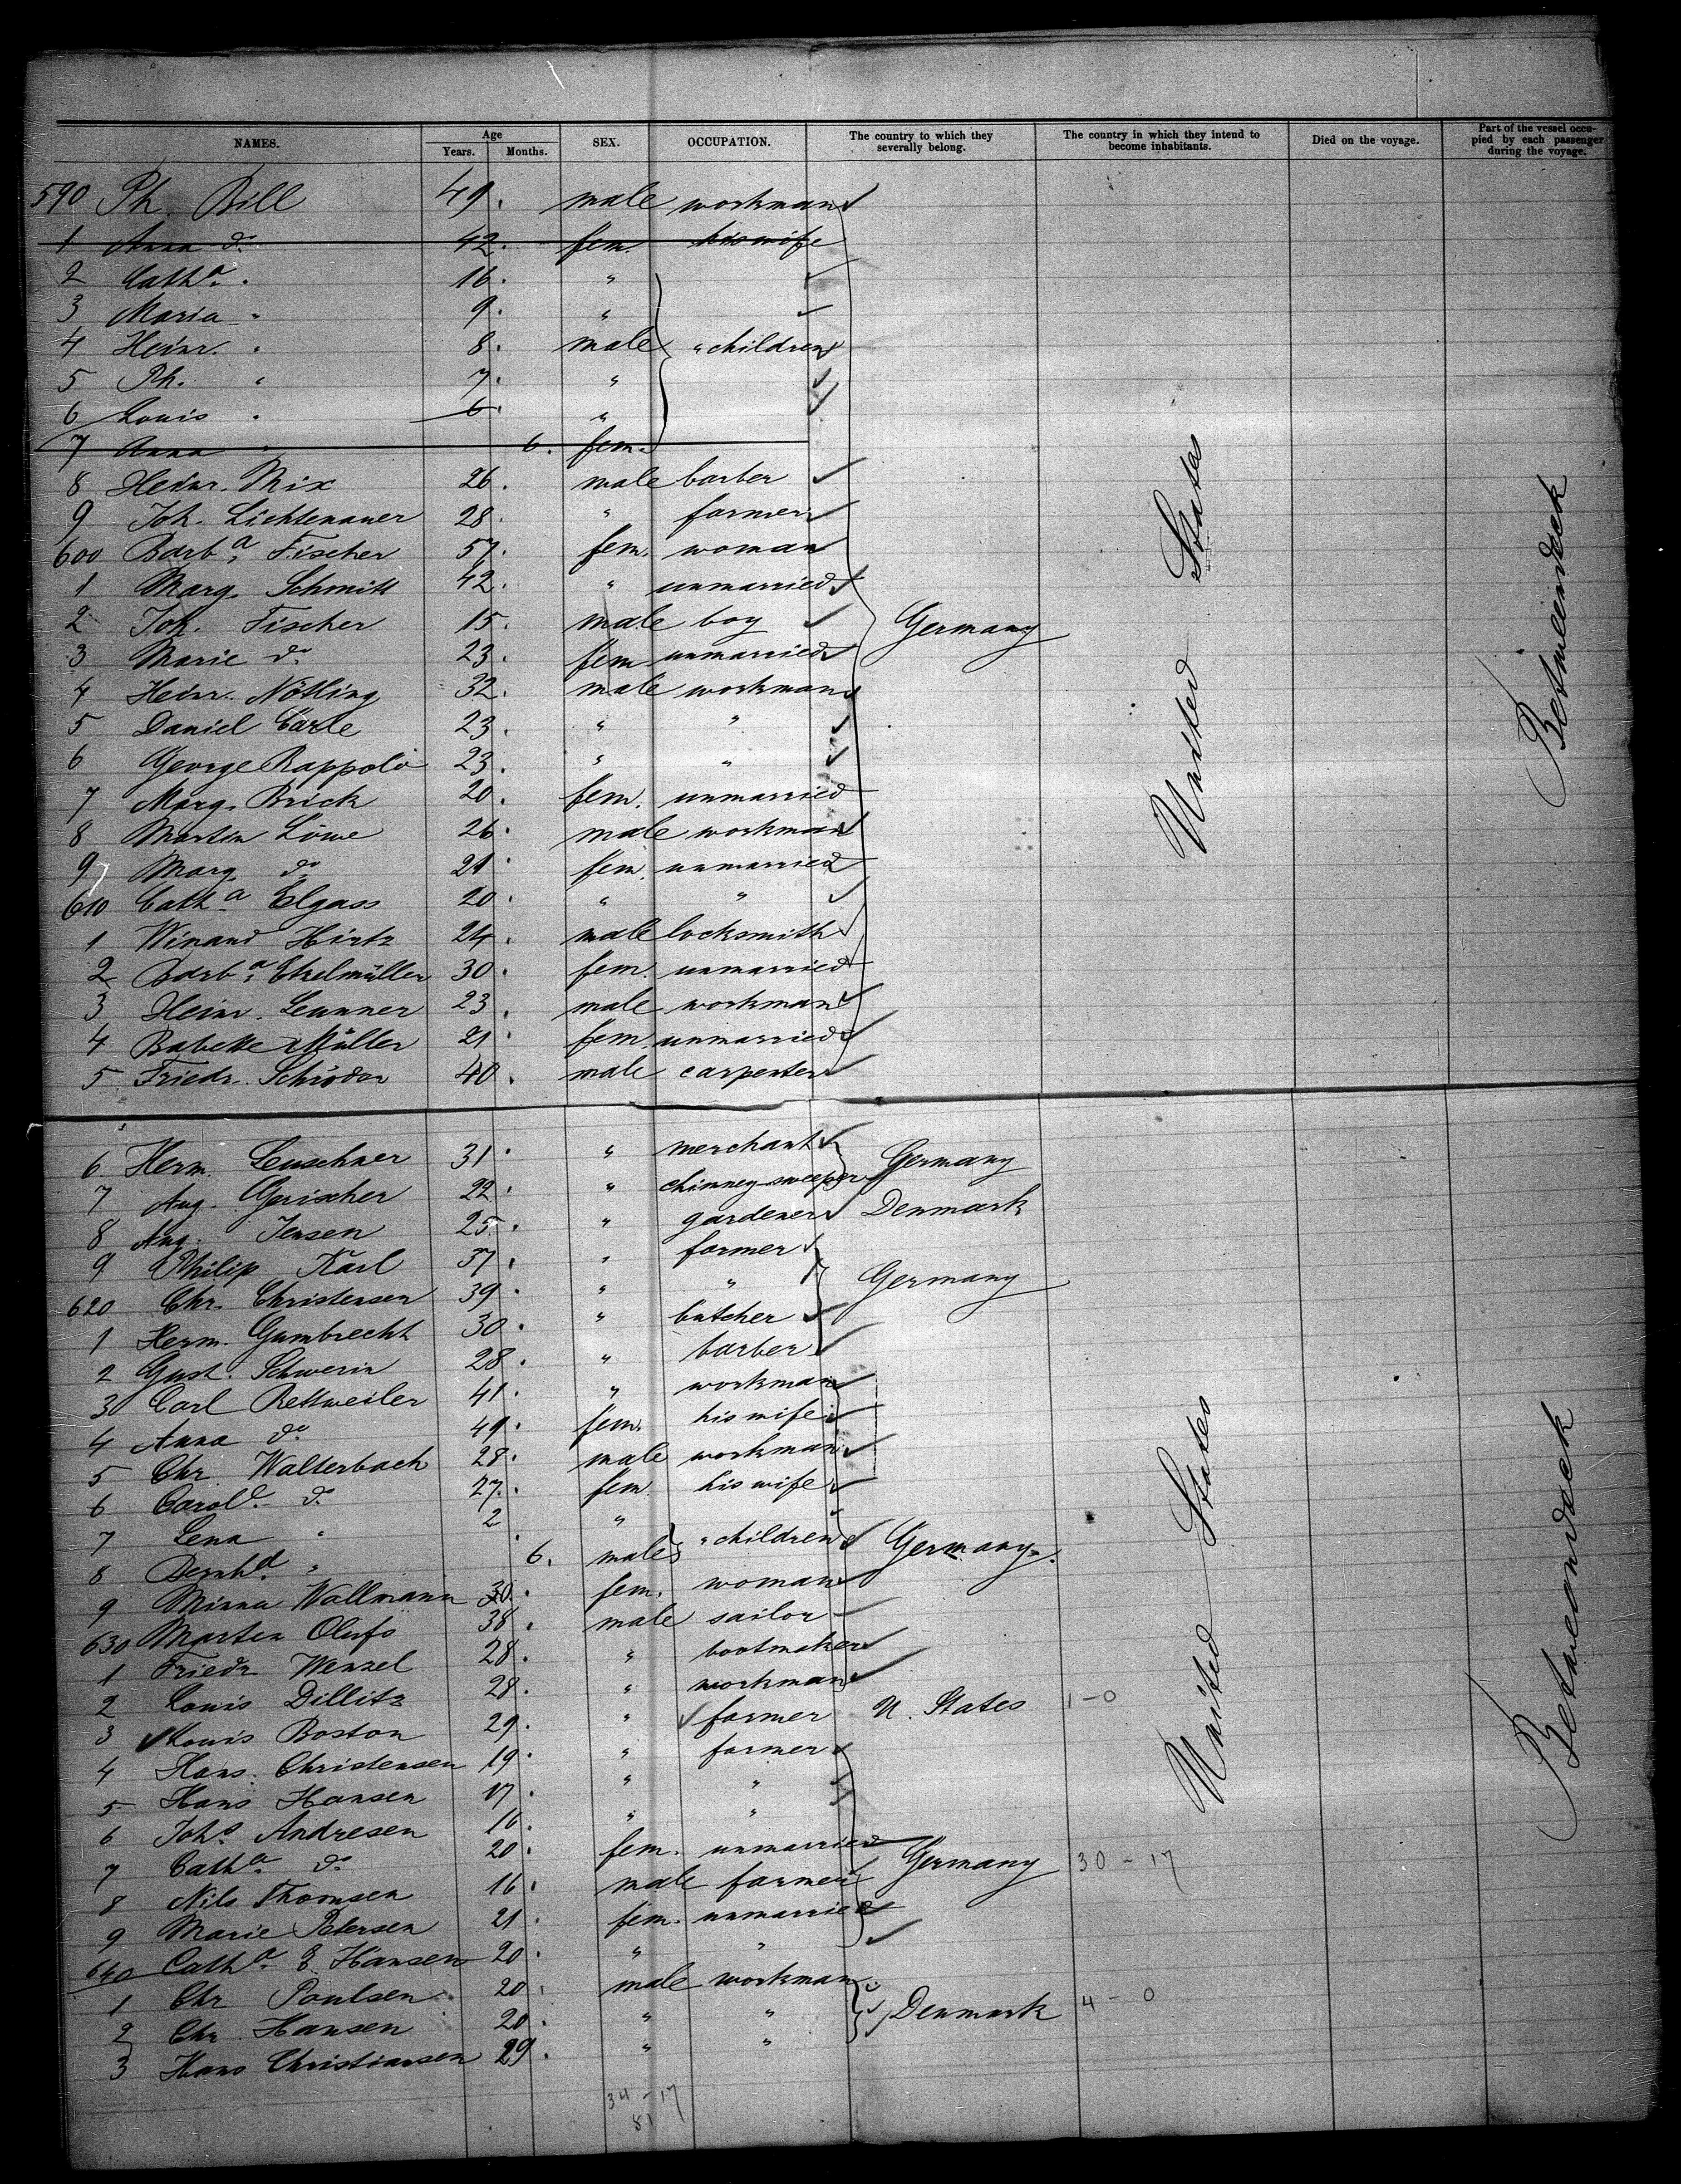 NAMES. Age Years. Months. SEX. OCCUPATION. The country to which they severally belong. The country in which they intend to become inhabitants. Died on the voyage. Part of the vessel occupied by each passenger during the voyage.
590 Ph. Bill 49. male workman
1 Anna do 42. fem. his wife
2 Catha. " 16. "
3 Maria " 9. "
4 Heinr. " 8. male " children
5 Ph. " 7. "
6 Louis " 6. "
7 Anna " 6. fem.
8 Heinr. Mix 26. male barber
9 Joh. Lichtenauer 28. " farmer
600 Barba. Fischer 57. fem. woman
1 Marg. Schmitt 42. " unmarried
2 Joh. Fischer 15. male boy Germany
3 Marie do 23. fem unmarried
4 Heinr. Nötling 32. male workman
5 Daniel Carle 23. " "
6 George Rappolo 23. " "
7 Marg. Brick 20. fem. unmarried
8 Martin Löwe 26. male workman
9 Marg. do 21 fem. unmarried
610 Catha. Elgass 20. " "
1 Winand Hirtz 24. male locksmith
2 Barba. Etzelmüller 30. fem. unmarried
3 Heinr. Leunner 23. male workman
4 Babette Müller 21. fem. unmarried
5 Friedr. Schröder 40. male carpenter
United States
Betweendeck
6 Herm. Leuschner 31. " merchant Germany
7 Aug. Gerischer 22. " chimney-sweeper
8 Aug. Jensen 25. " gardener Denmark
9 Philip Karl 37. " farmer
620 Chr. Christensen 39. " " Germany
1 Herm. Gumbrecht 30. " butcher
2 Gust. Schwerin 28. " barber
3 Carl Rettweiler 41. " workman
4 Anna do 49. fem. his wife
5 Chr Walterbach 28. male workman
6 Carole. do 27. fem. his wife
7 Lena " 2 "
8 Bernhd. " 6. male " children Germany.
9 Minna Wallmann 30. fem. woman
630 Marten Olufs 38. male sailor
1 Friedr Wenzel 28. " bootmaker
2 Louis Dillitz 28. " workman
3 Louis Boston 29. " farmer U. States 1-0
4 Hans Christensen 19. " farmer
5 Hans Hansen 17. " "
6 Johs. Andresen 16. " "
7 Catha. do 20. fem. unmarried Germany 30-17
8 Nils Thomsen 16. male farmer
9 Marie Petersen 21. fem. unmarried
640 Catha. E. Hansen 20. " "
1 Chr Poulsen 20. male workman
2 Chr. Hansen 20. " " Denmark 4-0
3 Hans Christiansen 29. " "
United States
Betweendeck
34-17
81